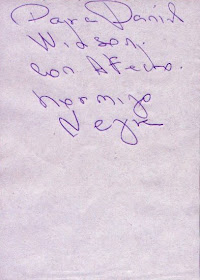 Para Daniel
Widson.
Con Afecto.
Hormiga
Neyra